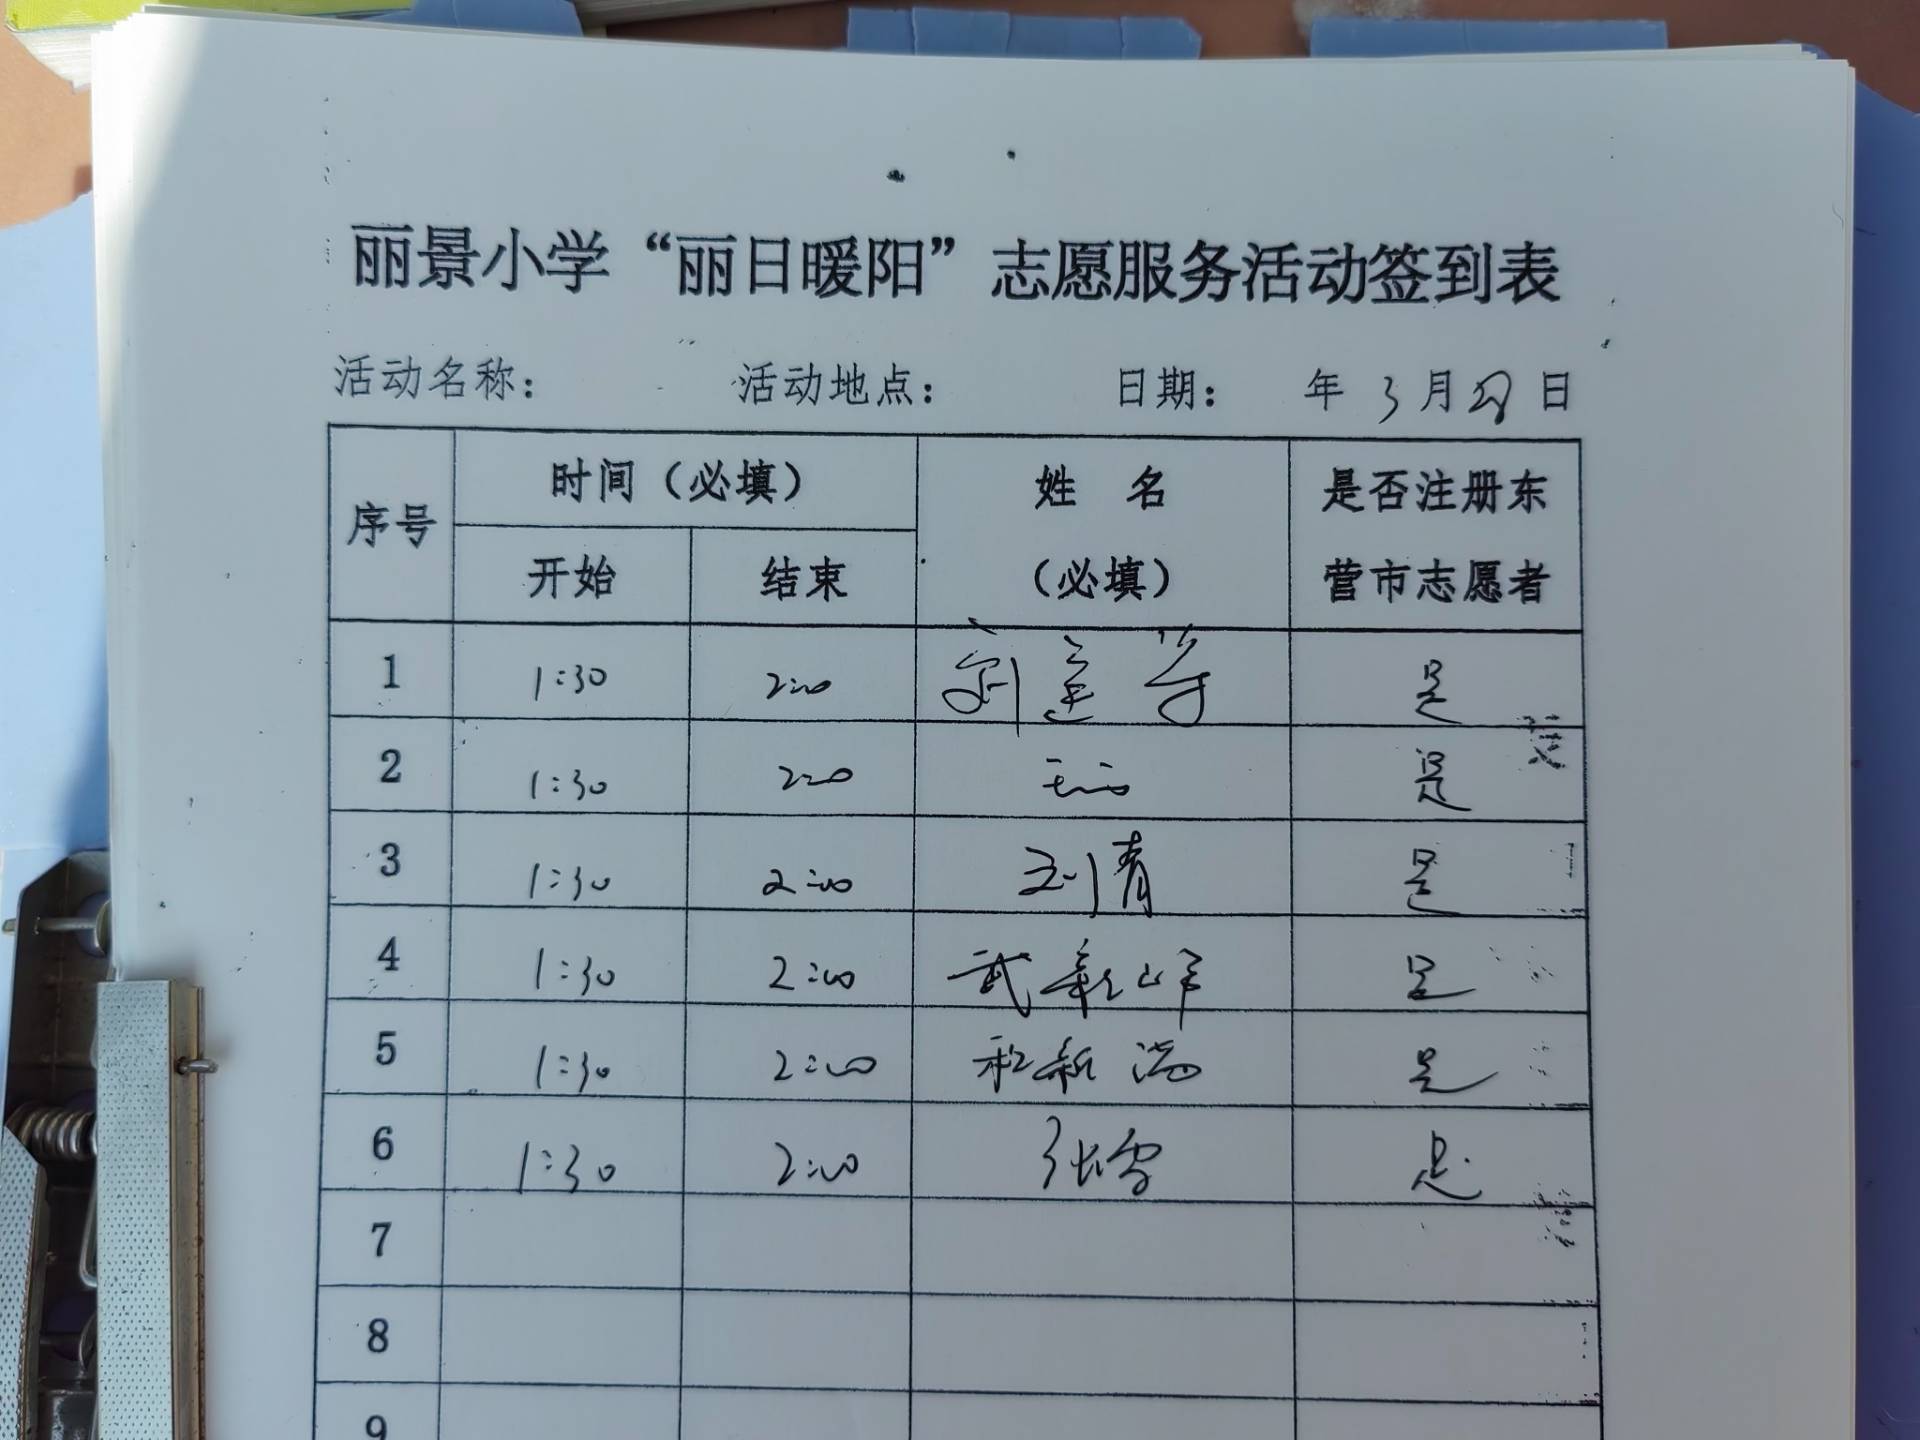 丽景小学“丽日暖阳”志愿服务活动签到表
活动名称： 活动地点： 日期： 年 3月28日
序号 时间（必填） 姓 名（必填） 是否注册东营市志愿者
开始 结束
1 1:30 2:00 是
2 1:30 2:00 是
3 1:30 2:00 刘青 是
4 1:30 2:00 武新峰 是
5 1:30 2:00 和新 是
6 1:30 2:00 张雪 是
7
8
9